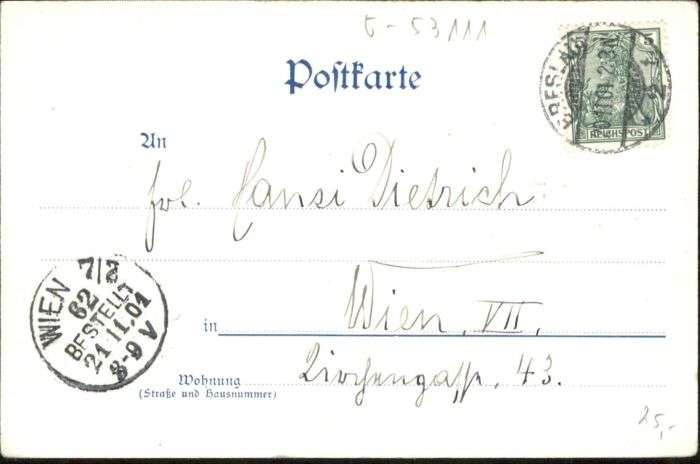 5-53111
Postkarte
5
BRESLAU
REICHSPOST
An
Frl. Hansi Dietrich
Wien, VII.
in
WIEN 7/2
62
BESTELLT
21.11.01
8-9 V
Wohnung
(Straße und Hausnummer)
43.
25,-